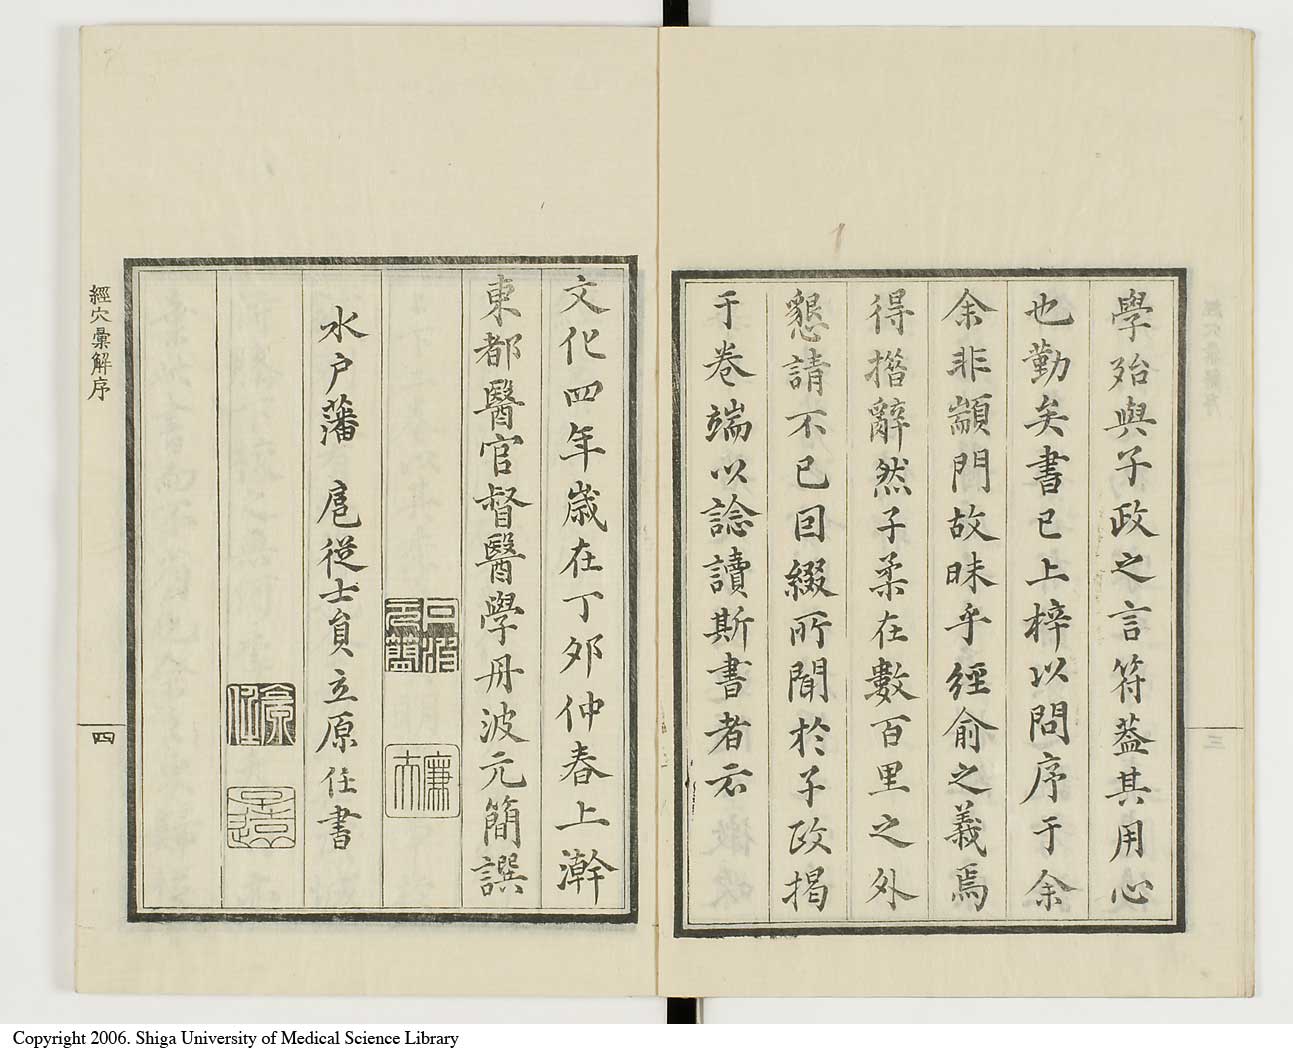 學殆與子政之言符蓋其用心
也勤矣書已上梓以問序于余
余非顓門故昧乎經俞之義焉
得揩辭然子柔在數百里之外
懇請不已因綴所聞於子政揭
于卷端以諗讀斯書者云
三
文化四年歲在丁夘仲春上澣
東都醫官督醫學丹波元簡譔
水戶藩扈從士員立原任書
經穴彙解序
四
Copyright 2006. Shiga University of Medical Science Library